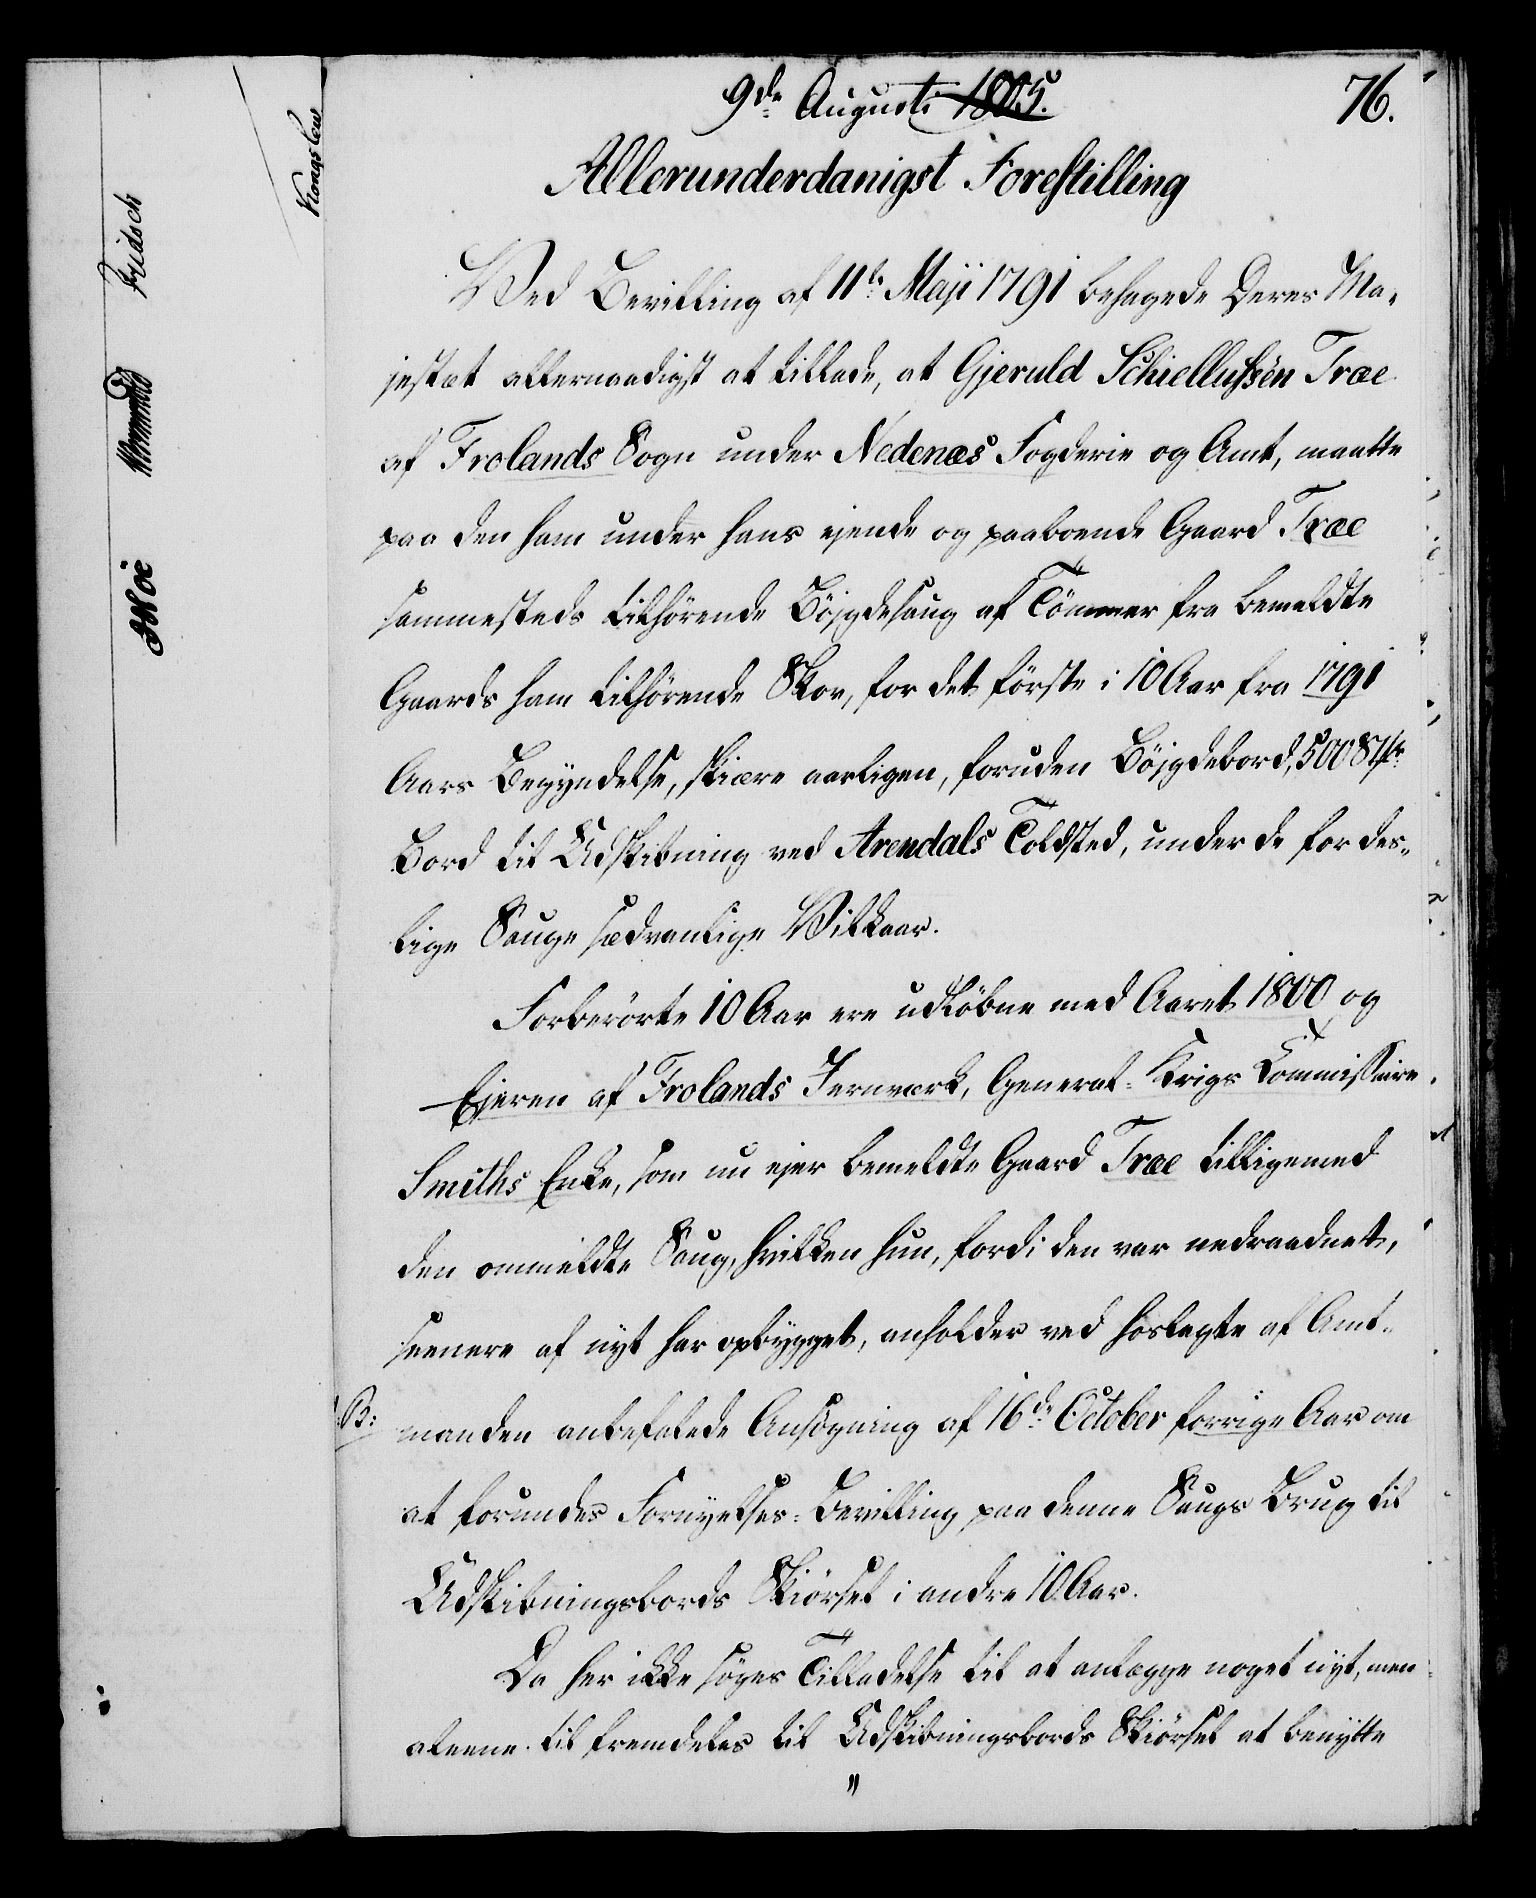 9de August 1805.
76.
Allerunderdanigst Forestilling
Ved Bevilling af 11te Maji 1791 behagede Deres Ma-
jestæt allernaadigst at tillade, at Gjeruld Schiellussen Træe
af Frolands Sogn under Nedenæs Fogderie og Amt, maatte
paa den ham under hans ejende og paaboende Gaard Træe
sammesteds tilhørende Böjgdesaug af Tömmer fra bemeldte
Gaards ham tilhörende Skov, for det förste i 10 Aar fra 1791
Aars Begyndelse, skiære aarligen, foruden Böjgdebord, 500
Bord til Udskibning ved Arendals Toldsted, under de for des-
lige Sauge sædvanlige Vilkaar.
Forberörte 10 Aar ere udløbne med Aaret 1800 og
Ejeren af Frolands Jernværk, General-Krigs Commissaire
Smiths Enke, som nu ejer bemeldte Gaard Træe tilligemed
den ommeldte Saug, hvilken hun, fordi den var nedraadnet,
seenere af nyt har opbygget, anholder ved hoslagte af Amt-
B:
manden anbefalede Ansögning af 16de October forrige Aar om
at forundes Fornyelses-Bevilling paa denne Saugs Brug til
Udskibningsbords Skiörsel i andre 10 Aar.
Da her ikke söges Tilladelse til at anlægge noget nyt, men
aleene til fremdeles til Udskibningsbords Skiörsel at benytte
"
Kongslew
Fridsch
Høe